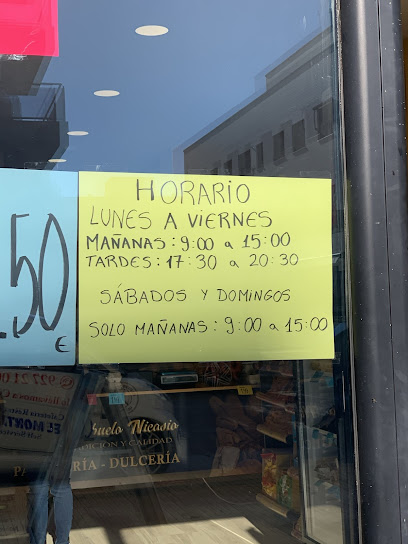 HORARIO
LUNES A VIERNES
MAÑANAS: 9:00 a 15:00
TARDES: 17:30 a 20:30
SÁBADOS Y DOMINGOS
SOLO MAÑANAS: 9:00 a 15:00
50
€
buelo Nicasio
DICIÓN Y CALIDAD
RÍA - DULCERÍA